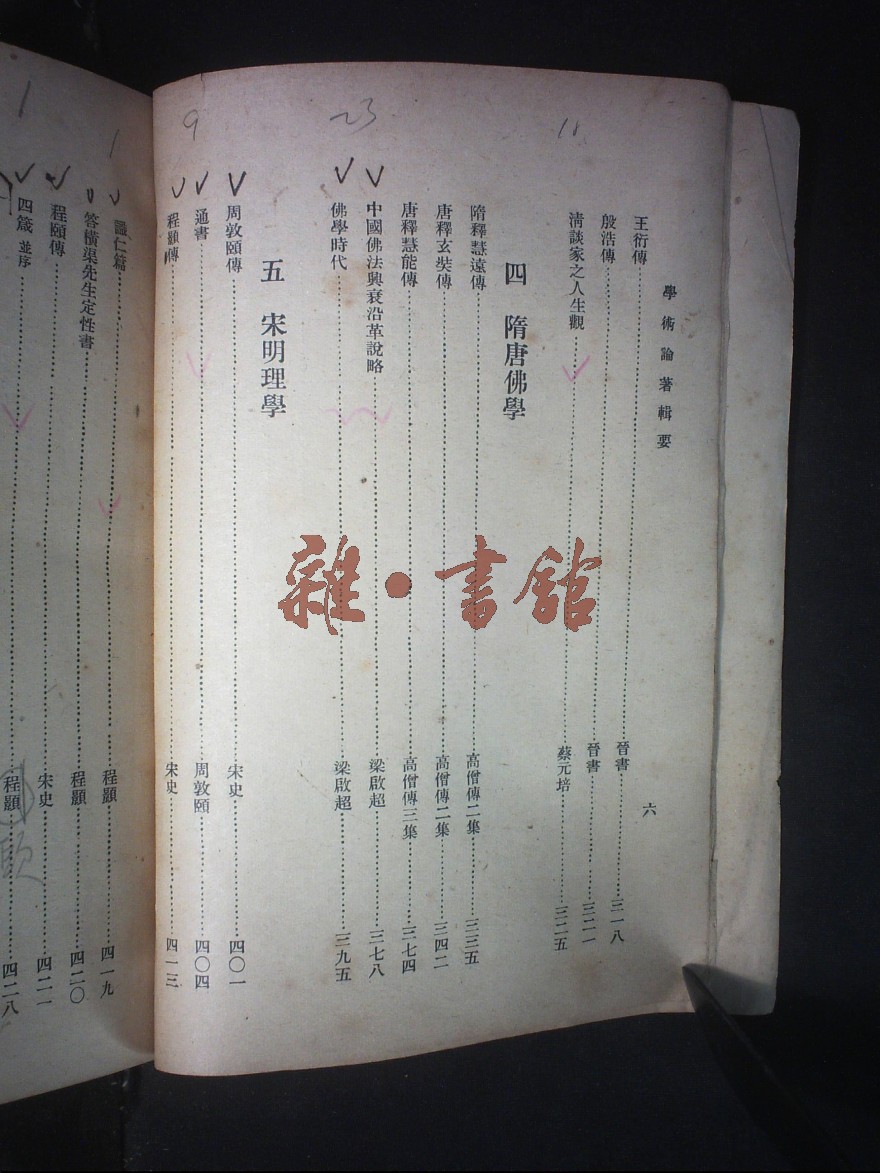 學術論著輯要
六
王衍傳 晉書 三一八
殷浩傳 晉書 三二一
清談家之人生觀 蔡元培 三二五
四 隋唐佛學
隋釋慧遠傳 高僧傳二集 三三五
唐釋玄奘傳 高僧傳二集 三四二
唐釋慧能傳 高僧傳三集 三七四
中國佛法興衰沿革說略 梁啟超 三七八
佛學時代 梁啟超 三九五
五 宋明理學
周敦頤傳 宋史 四〇一
通書 周敦頤 四〇四
程顥傳 宋史 四一三
識仁篇 程顥 四一九
答橫渠先生定性書 程顥 四二〇
程頤傳 宋史 四二一
四箴 並序 程顥 四二八
11
23
9
1
1
頤
雜·書館